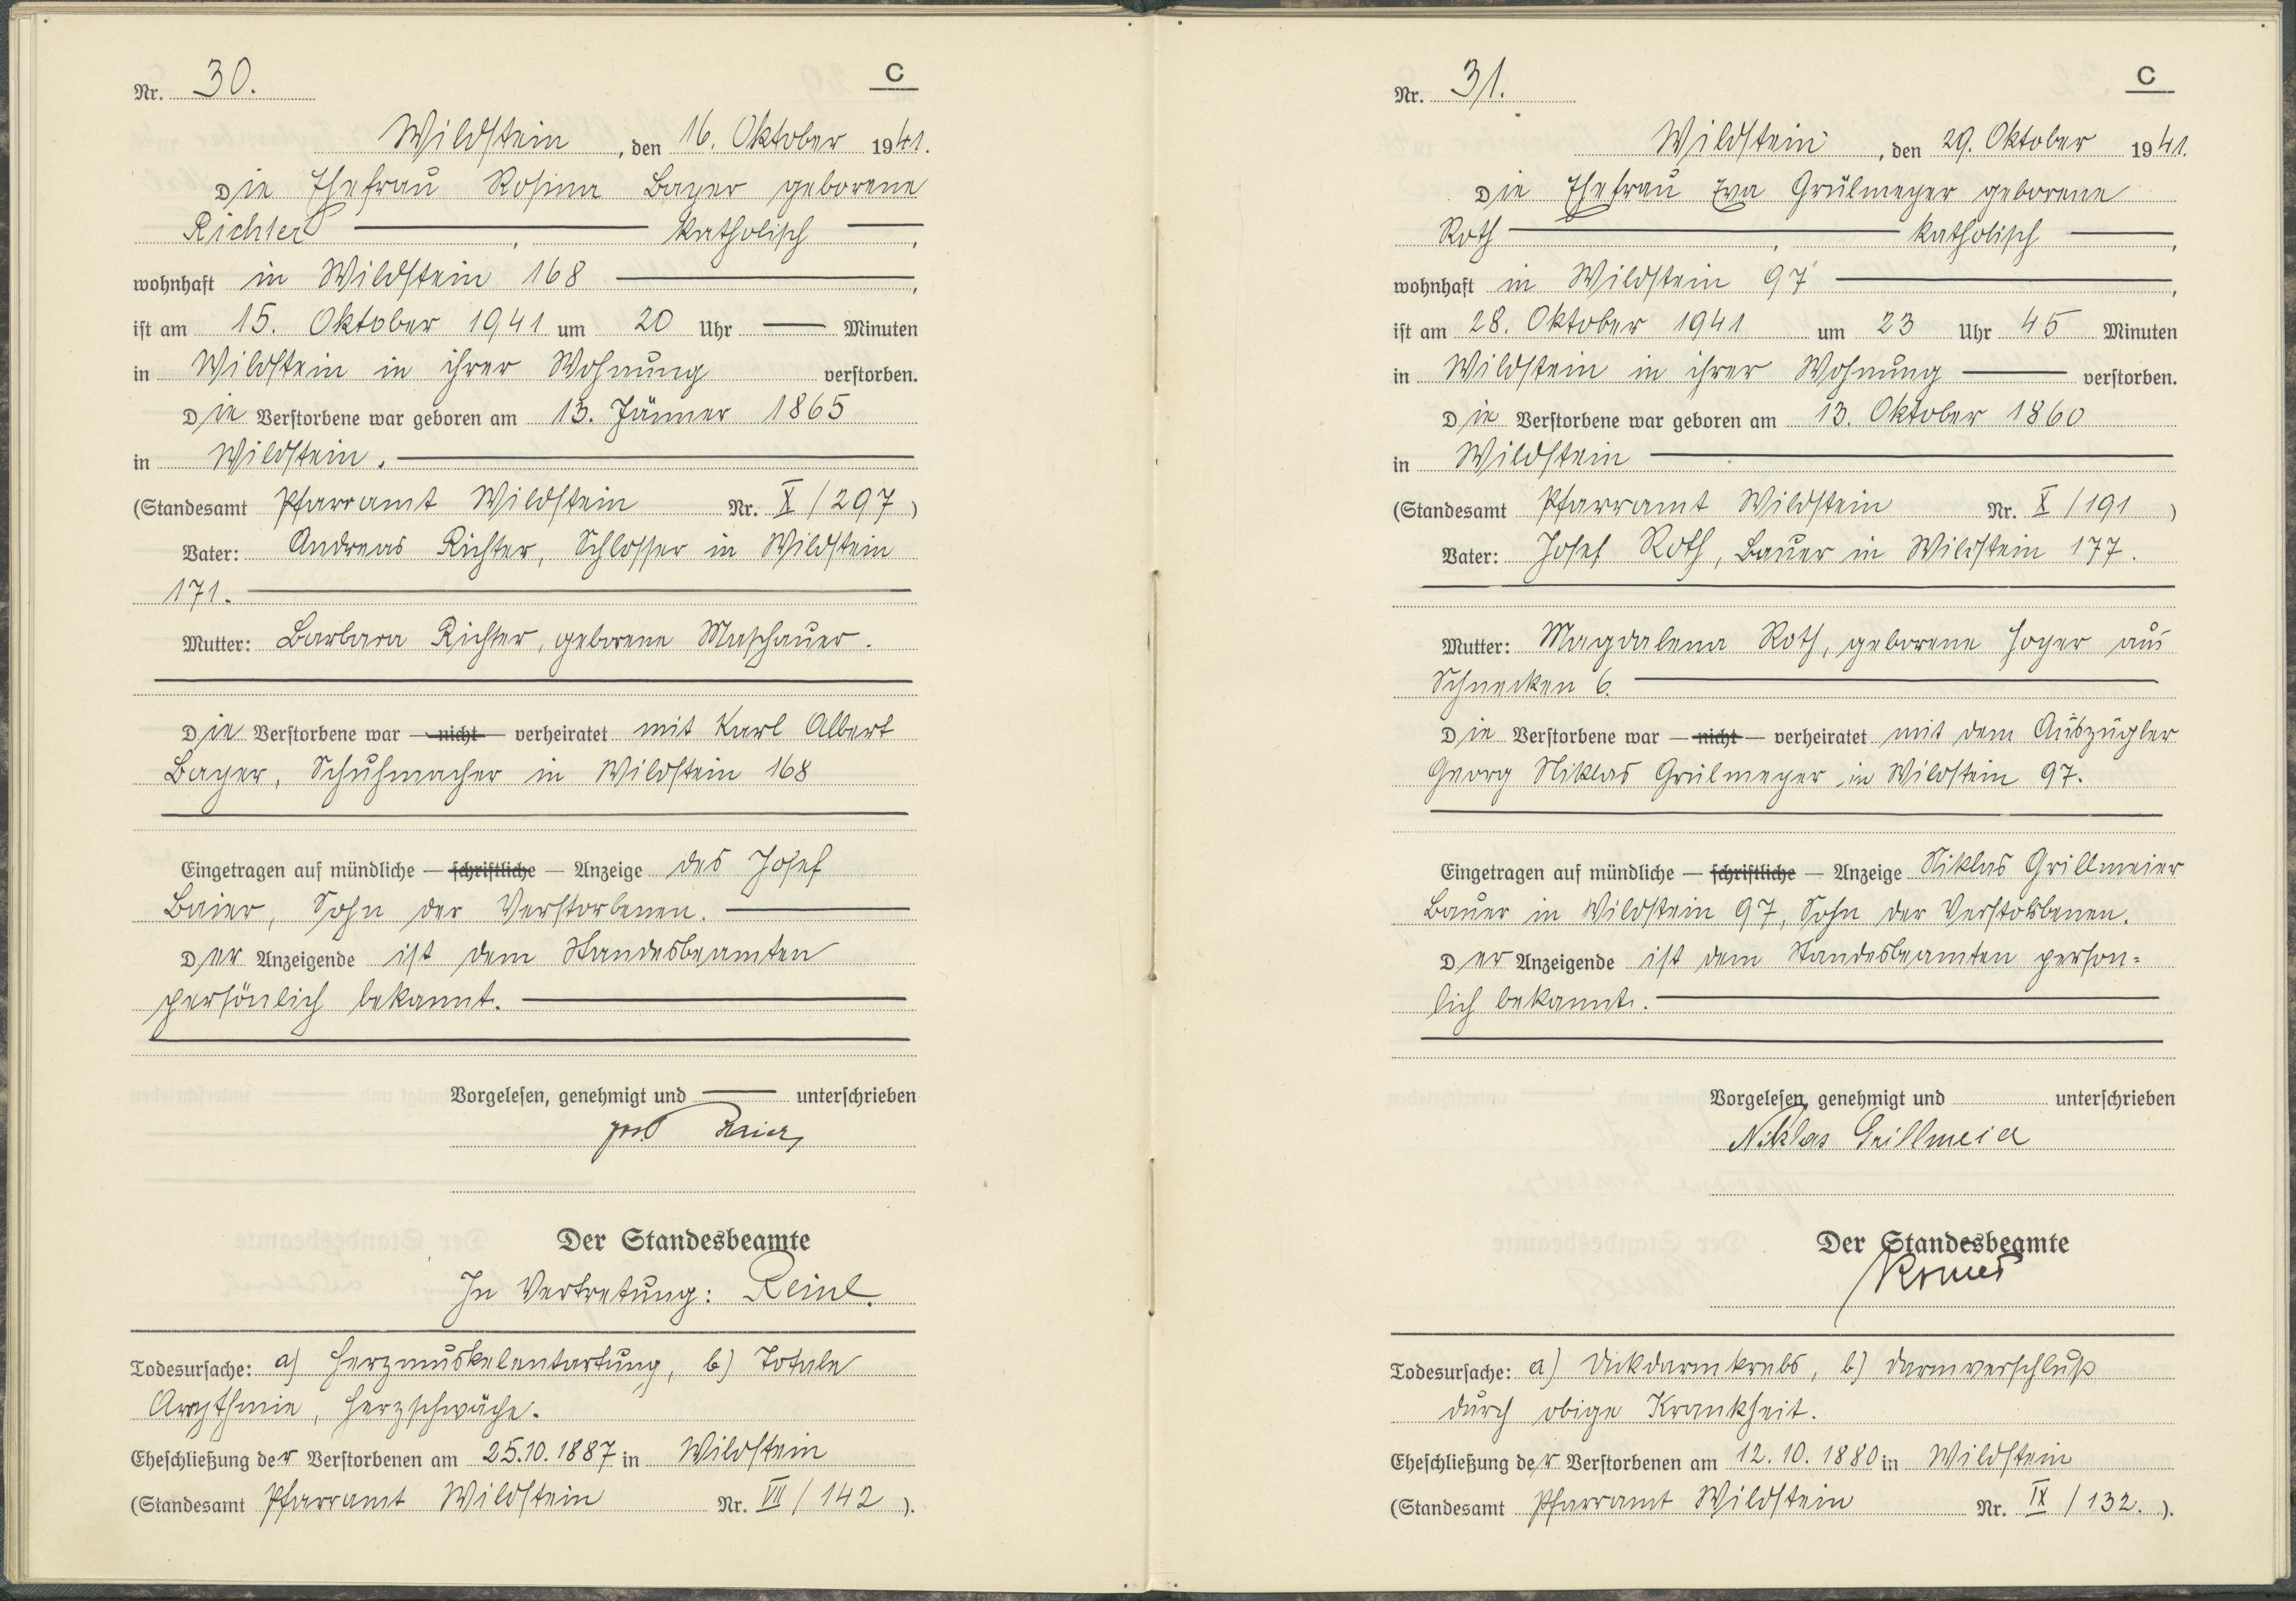 Nr. 30.
C
Wildstein, den 16. Oktober 1941.
Die Ehefrau Rosina Bayer geborene
Richter, katholisch,
wohnhaft in Wildstein 168,
ist am 15. Oktober 1941 um 20 Uhr — Minuten
in Wildstein in ihrer Wohnung verstorben.
Die Verstorbene war geboren am 13. Jänner 1865
in Wildstein.
(Standesamt Pfarramt Wildstein Nr. X/297)
Vater: Andreas Richter, Schlosser in Wildstein
171.
Mutter: Barbara Richter, geborene Maschauer.
Die Verstorbene war — nicht — verheiratet mit Karl Albert
Bayer, Schuhmacher in Wildstein 168
Eingetragen auf mündliche — schriftliche — Anzeige des Josef
Baier, Sohn der Verstorbenen.
Der Anzeigende ist dem Standesbeamten
persönlich bekannt.
Vorgelesen, genehmigt und — unterschrieben
Baier
Der Standesbeamte
In Vertretung: Reinl.
Todesursache: a) Herzmuskelentartung, b) Totale
Arrythmie, Herzschwäche.
Eheschließung der Verstorbenen am 25.10.1887 in Wildstein
(Standesamt Pfarramt Wildstein Nr. VIII/142).
Nr. 31.
C
Wildstein, den 29. Oktober 1941.
Die Ehefrau Eva Grülmeyer geborene
Roth, katholisch,
wohnhaft in Wildstein 97,
ist am 28. Oktober 1941 um 23 Uhr 45 Minuten
in Wildstein in ihrer Wohnung verstorben.
Die Verstorbene war geboren am 13. Oktober 1860
in Wildstein
(Standesamt Pfarramt Wildstein Nr. X/191)
Vater: Josef Roth, Bauer in Wildstein 177.
Mutter: Magdalena Roth, geborene Hoyer aus
Schnecken 6.
Die Verstorbene war — nicht — verheiratet mit dem Auszügler
Georg Niklas Grülmeyer in Wildstein 97.
Eingetragen auf mündliche — schriftliche — Anzeige Niklas Grillmeier
Bauer in Wildstein 97, Sohn der Verstorbenen.
Der Anzeigende ist dem Standesbeamten person-
lich bekannt.
Vorgelesen, genehmigt und unterschrieben
Niklas Grillmeier
Der Standesbeamte
Todesursache: a) Dickdarmkrebs, b) Darmverschluß
durch obige Krankheit.
Eheschließung der Verstorbenen am 12.10.1880 in Wildstein
(Standesamt Pfarramt Wildstein Nr. IX/132.).